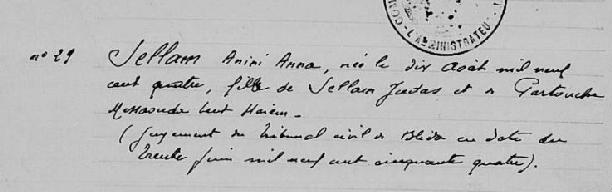 COM
L'ADMINISTRATEUR
n° 29 Sellam Anini Anna, née le dix Août mil neuf
cent quatre, fille de Sellam Judas et de Partouche
Messaouda bent Haïem.
(Jugement du Tribunal civil de Blida en date du
trente juin mil neuf cent cinquante quatre).